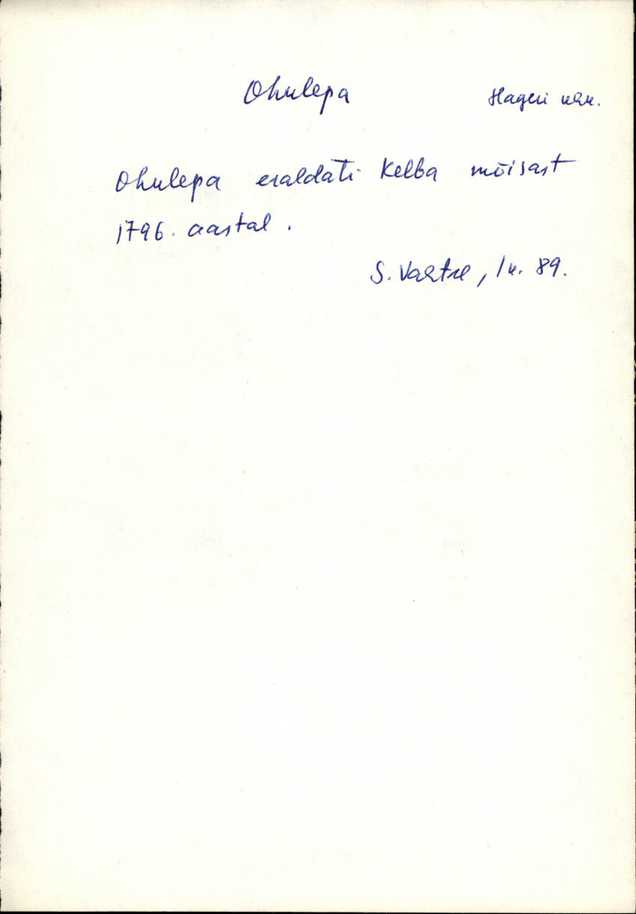 Ohulepa Hageri khk.
Ohulepa eraldati Kelba mõisast
1796. aastal.
S. Vahtre, 89.